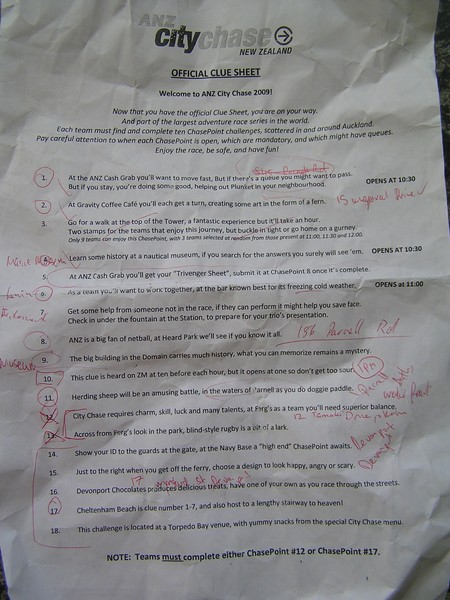 ANZ
citychase
NEW ZEALAND
OFFICIAL CLUE SHEET
Welcome to ANZ City Chase 2009!
Now that you have the official Clue Sheet, you are on your way.
And part of the largest adventure race series in the world.
Each team must find and complete ten ChasePoint challenges, scattered in and around Auckland.
Pay careful attention to when each ChasePoint is open, which are mandatory, and which might have queues.
Enjoy the race, be safe, and have fun!
1. At the ANZ Cash Grab you'll want to move fast, But if there's a queue you might want to pass.
But if you stay, you're doing some good, helping out Plunket in your neighbourhood.
OPENS AT 10:30
2. At Gravity Coffee Café you'll each get a turn, creating some art in the form of a fern.
3. Go for a walk at the top of the Tower, a fantastic experience but it'll take an hour.
Two stamps for the teams that enjoy this journey, but buckle in tight or go home on a gurney.
Only 9 teams can enjoy this ChasePoint, with 3 teams selected at random from those present at 11:00, 11:30 and 12:00.
4. Learn some history at a nautical museum, if you search for the answers you surely will see 'em.
OPENS AT 10:30
5. At ANZ Cash Grab you'll get your "Trivenger Sheet", submit it at ChasePoint 8 once it's complete.
6. As a team you'll want to work together, at the bar known best for its freezing cold weather.
OPENS at 11:00
Get some help from someone not in the race, if they can perform it might help you save face.
Check in under the fountain at the Station, to prepare for your trio's presentation.
186 Parnell Rd
8. ANZ is a big fan of netball, at Heard Park we'll see if you know it all.
9. The big building in the Domain carries much history, what you can memorize remains a mystery.
museum
10. This clue is heard on ZM at ten before each hour, but it opens at one so don't get too sour.
1PM
11. Herding sheep will be an amusing battle, in the waters of Parnell as you do doggie paddle.
Parnell
12. City Chase requires charm, skill, luck and many talents, at Ferg's as a team you'll need superior balance.
13. Across from Ferg's look in the park, blind-style rugby is a bit of a lark.
14. Show your ID to the guards at the gate, at the Navy Base a "high end" ChasePoint awaits.
Devonport
15. Just to the right when you get off the ferry, choose a design to look happy, angry or scary.
17
16. Devonport Chocolates produces delicious treats, have one of your own as you race through the streets.
17. Cheltenham Beach is clue number 1-7, and also host to a lengthy stairway to heaven!
18. This challenge is located at a Torpedo Bay venue, with yummy snacks from the special City Chase menu.
NOTE: Teams must complete either ChasePoint #12 or ChasePoint #17.